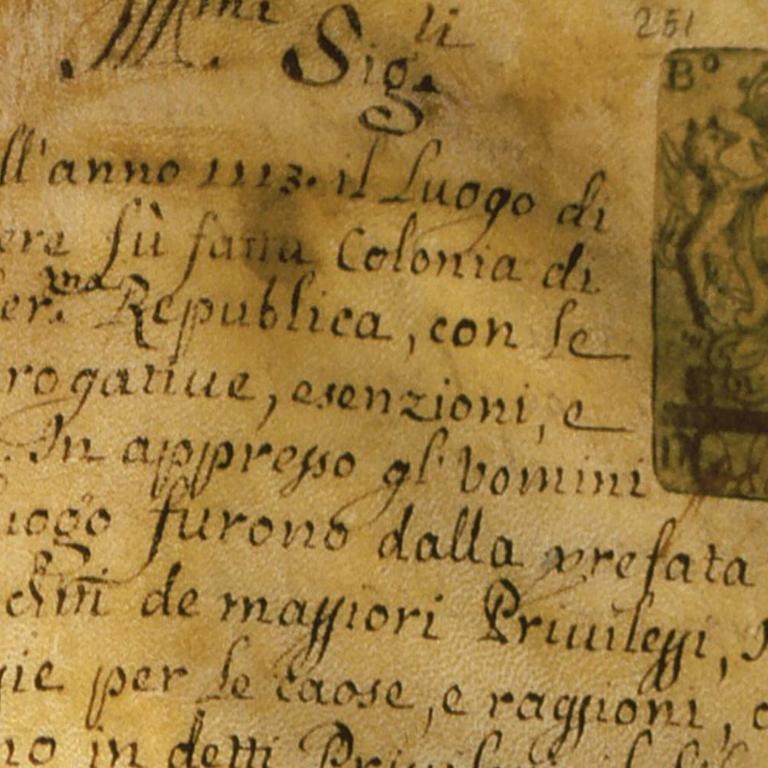 251
Ill.mi Sig.li
B°
ll'anno 1113. il Luogo di
ere fù fatta Colonia di
er.ma Republica, con le
rogatiue, esenzioni, e
In appresso gl' Vomini
uogo furono dalla prefata
de maggiori Priuileggi,
gie per le caose, e raggioni,
no in detti